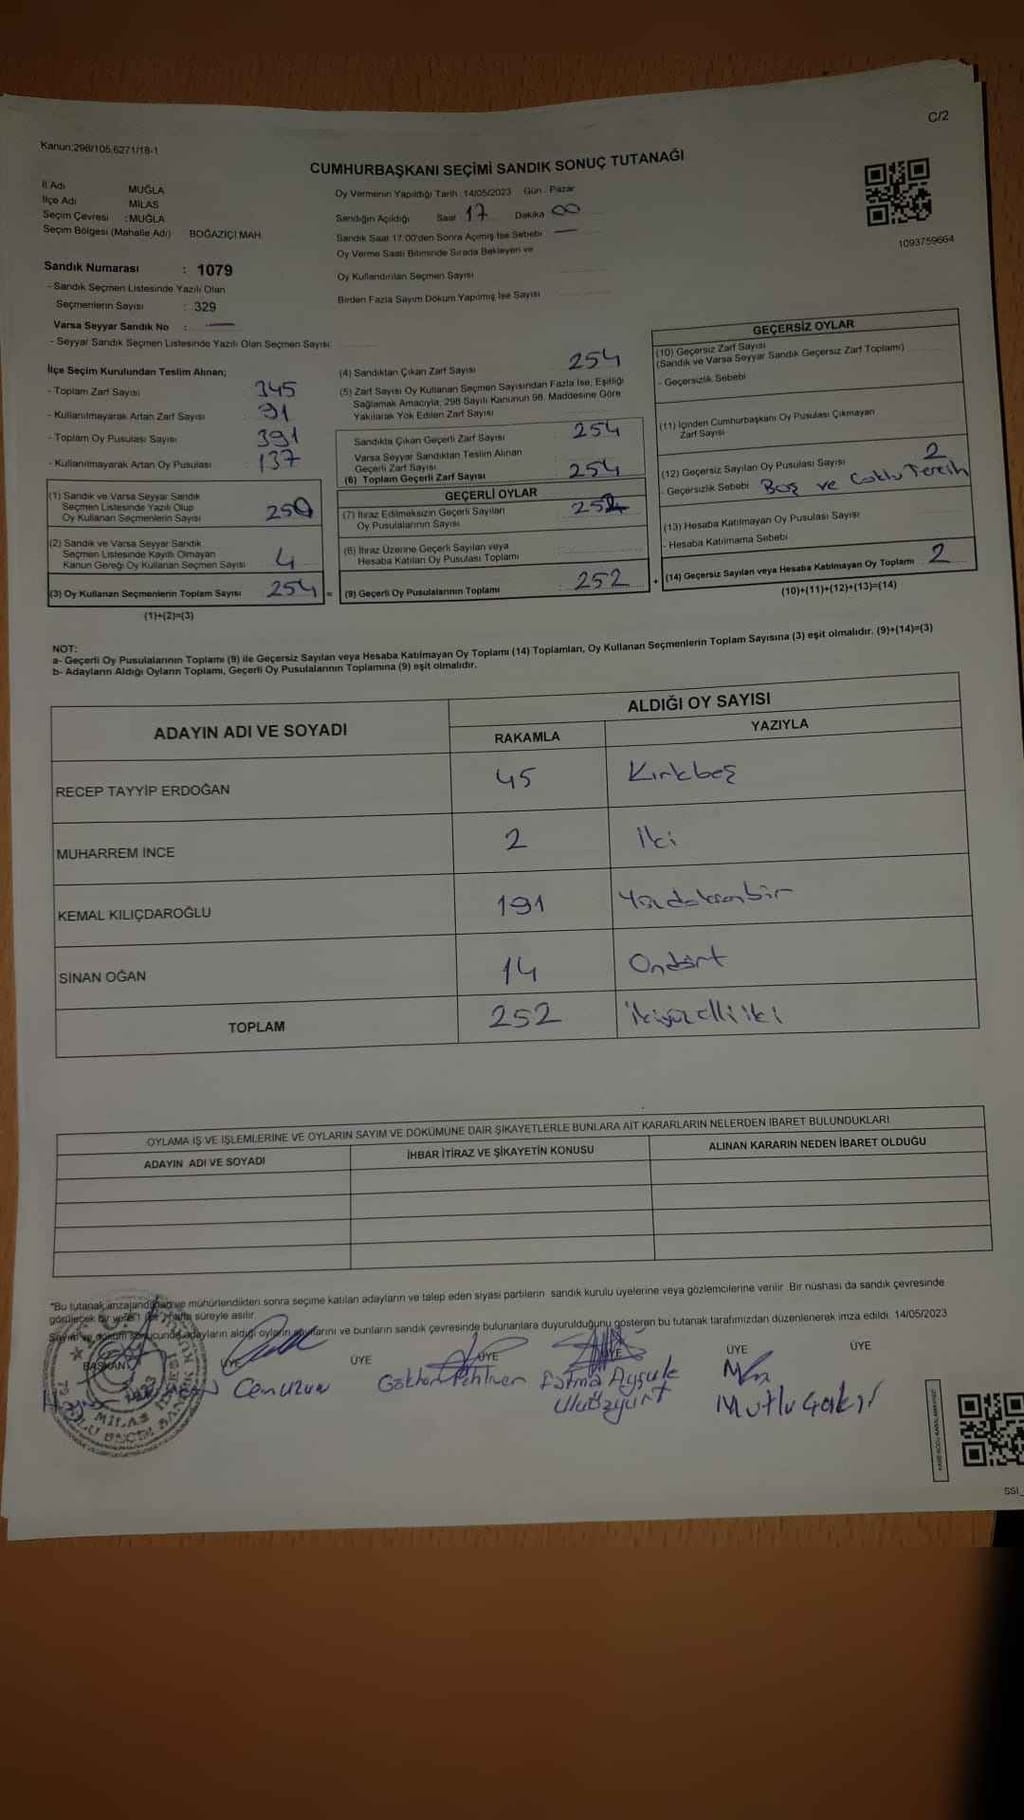 C/2
Kanun:298/105,6271/18-1
CUMHURBAŞKANI SEÇİMİ SANDIK SONUÇ TUTANAĞI
İl Adı MUĞLA
İlçe Adı MİLAS
Seçim Çevresi :MUĞLA
Seçim Bölgesi (Mahalle Adı) BOĞAZİÇİ MAH.
Oy Vermenin Yapıldığı Tarih :14/05/2023 Gün : Pazar
Sandığın Açıldığı Saat 17 Dakika 00
Sandık Saat 17:00'den Sonra Açılmış İse Sebebi —
Oy Verme Saati Bitiminde Sırada Bekleyen ve
Oy Kullandırılan Seçmen Sayısı
Birden Fazla Sayım Döküm Yapılmış İse Sayısı
1093759664
Sandık Numarası : 1079
- Sandık Seçmen Listesinde Yazılı Olan
Seçmenlerin Sayısı : 329
Varsa Seyyar Sandık No : —
- Seyyar Sandık Seçmen Listesinde Yazılı Olan Seçmen Sayısı
İlçe Seçim Kurulundan Teslim Alınan;
- Toplam Zarf Sayısı 345
- Kullanılmayarak Artan Zarf Sayısı 91
- Toplam Oy Pusulası Sayısı 391
- Kullanılmayarak Artan Oy Pusulası 137
(1) Sandık ve Varsa Seyyar Sandık
Seçmen Listesinde Yazılı Olup
Oy Kullanan Seçmenlerin Sayısı 250
(2) Sandık ve Varsa Seyyar Sandık
Seçmen Listesinde Kayıtlı Olmayan
Kanun Gereği Oy Kullanan Seçmen Sayısı 4
(3) Oy Kullanan Seçmenlerin Toplam Sayısı 254 =
(1)+(2)=(3)
(4) Sandıktan Çıkan Zarf Sayısı 254
(5) Zarf Sayısı Oy Kullanan Seçmen Sayısından Fazla İse, Eşitliği
Sağlamak Amacıyla, 298 Sayılı Kanunun 98. Maddesine Göre
Yakılarak Yok Edilen Zarf Sayısı
Sandıkta Çıkan Geçerli Zarf Sayısı 254
Varsa Seyyar Sandıktan Teslim Alınan
Geçerli Zarf Sayısı
(6) Toplam Geçerli Zarf Sayısı 254
GEÇERLİ OYLAR
(7) İtiraz Edilmeksizin Geçerli Sayılan
Oy Pusulalarının Sayısı 252
(8) İtiraz Üzerine Geçerli Sayılan veya
Hesaba Katılan Oy Pusulası Toplamı
(9) Geçerli Oy Pusulalarının Toplamı 252 +
GEÇERSİZ OYLAR
(10) Geçersiz Zarf Sayısı
(Sandık ve Varsa Seyyar Sandık Geçersiz Zarf Toplamı)
- Geçersizlik Sebebi
(11) İçinden Cumhurbaşkanı Oy Pusulası Çıkmayan
Zarf Sayısı
(12) Geçersiz Sayılan Oy Pusulası Sayısı 2
- Geçersizlik Sebebi Boş ve Çoklu Tercih
(13) Hesaba Katılmayan Oy Pusulası Sayısı
- Hesaba Katılmama Sebebi
(14) Geçersiz Sayılan veya Hesaba Katılmayan Oy Toplamı 2
(10)+(11)+(12)+(13)=(14)
NOT:
a- Geçerli Oy Pusulalarının Toplamı (9) ile Geçersiz Sayılan veya Hesaba Katılmayan Oy Toplamı (14) Toplamları, Oy Kullanan Seçmenlerin Toplam Sayısına (3) eşit olmalıdır. (9)+(14)=(3)
b- Adayların Aldığı Oyların Toplamı, Geçerli Oy Pusulalarının Toplamına (9) eşit olmalıdır.
ADAYIN ADI VE SOYADI ALDIĞI OY SAYISI
RAKAMLA YAZIYLA
RECEP TAYYİP ERDOĞAN 45 Kırkbeş
MUHARREM İNCE 2 İki
KEMAL KILIÇDAROĞLU 191 Yüzdoksanbir
SİNAN OĞAN 14 Ondört
TOPLAM 252 ikiyüzelliiki
OYLAMA İŞ VE İŞLEMLERİNE VE OYLARIN SAYIM VE DÖKÜMÜNE DAİR ŞİKAYETLERLE BUNLARA AİT KARARLARIN NELERDEN İBARET BULUNDUKLARI
ADAYIN ADI VE SOYADI İHBAR İTİRAZ VE ŞİKAYETİN KONUSU ALINAN KARARIN NEDEN İBARET OLDUĞU
"Bu tutanak imzalandıktan ve mühürlendikten sonra seçime katılan adayların ve talep eden siyasi partilerin sandık kurulu üyelerine veya gözlemcilerine verilir. Bir nüshası da sandık çevresinde
görülecek bir yere 1 hafta süreyle asılır.
Sayım ve döküm sonucunda adayların aldığı oyların sayılarını ve bunların sandık çevresinde bulunanlara duyurulduğunu gösteren bu tutanak tarafımızdan düzenlenerek imza edildi. 14/05/2023
BAŞKAN ÜYE ÜYE ÜYE ÜYE ÜYE ÜYE
Cem Uzun Gökhan Pehlivan Fatma Ayşule
Uluözyurt Mutlu Çakır
MİLAS
SSİ_